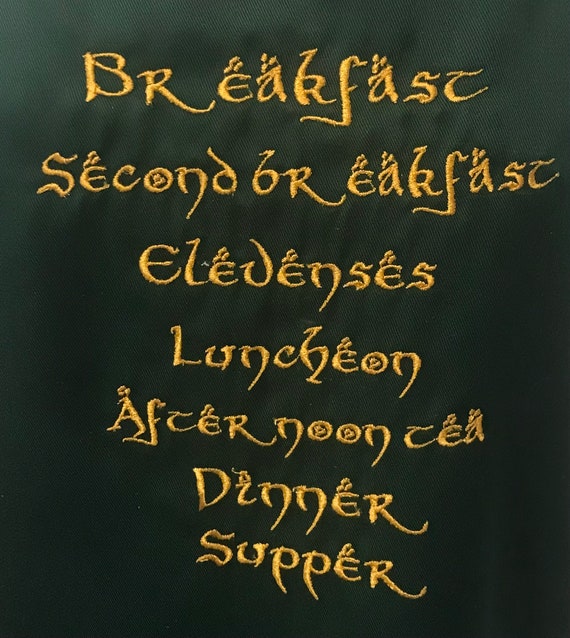 Breakfast
Second breakfast
Elevenses
Luncheon
Afternoon tea
Dinner
Supper